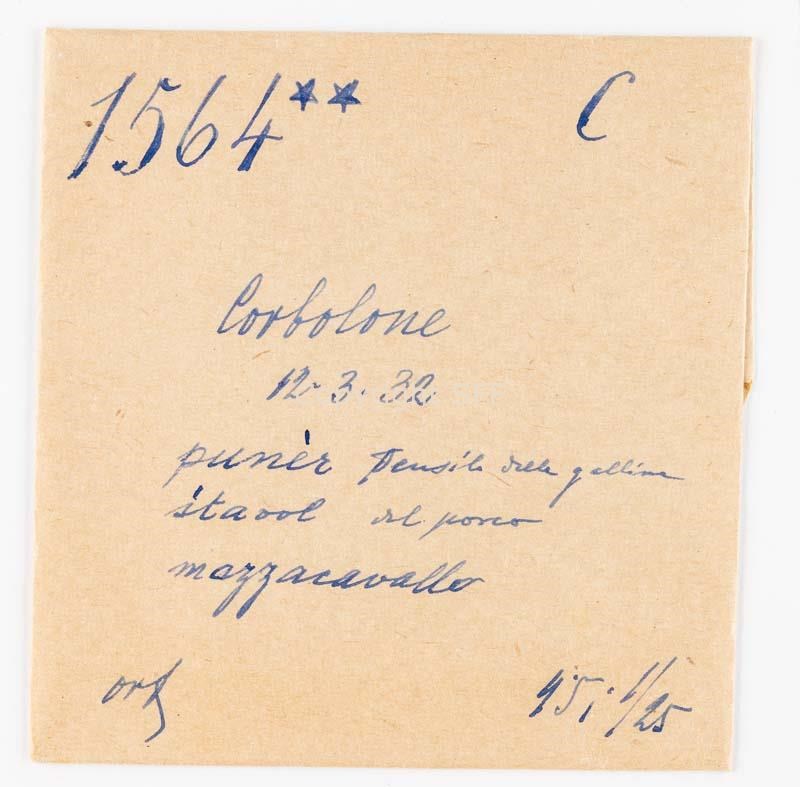 1564** C
Corbolone
12.3.32
punèr pensile delle galline
štavol del porco
mazzacavallo
ort 4,5; 1/25